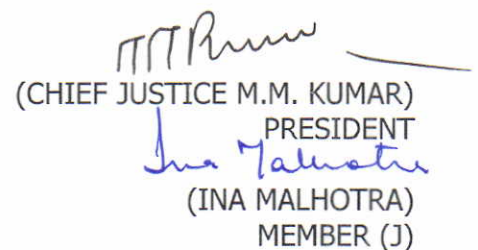 (CHIEF JUSTICE M.M. KUMAR)
PRESIDENT
Ina Malhotra
(INA MALHOTRA)
MEMBER (J)